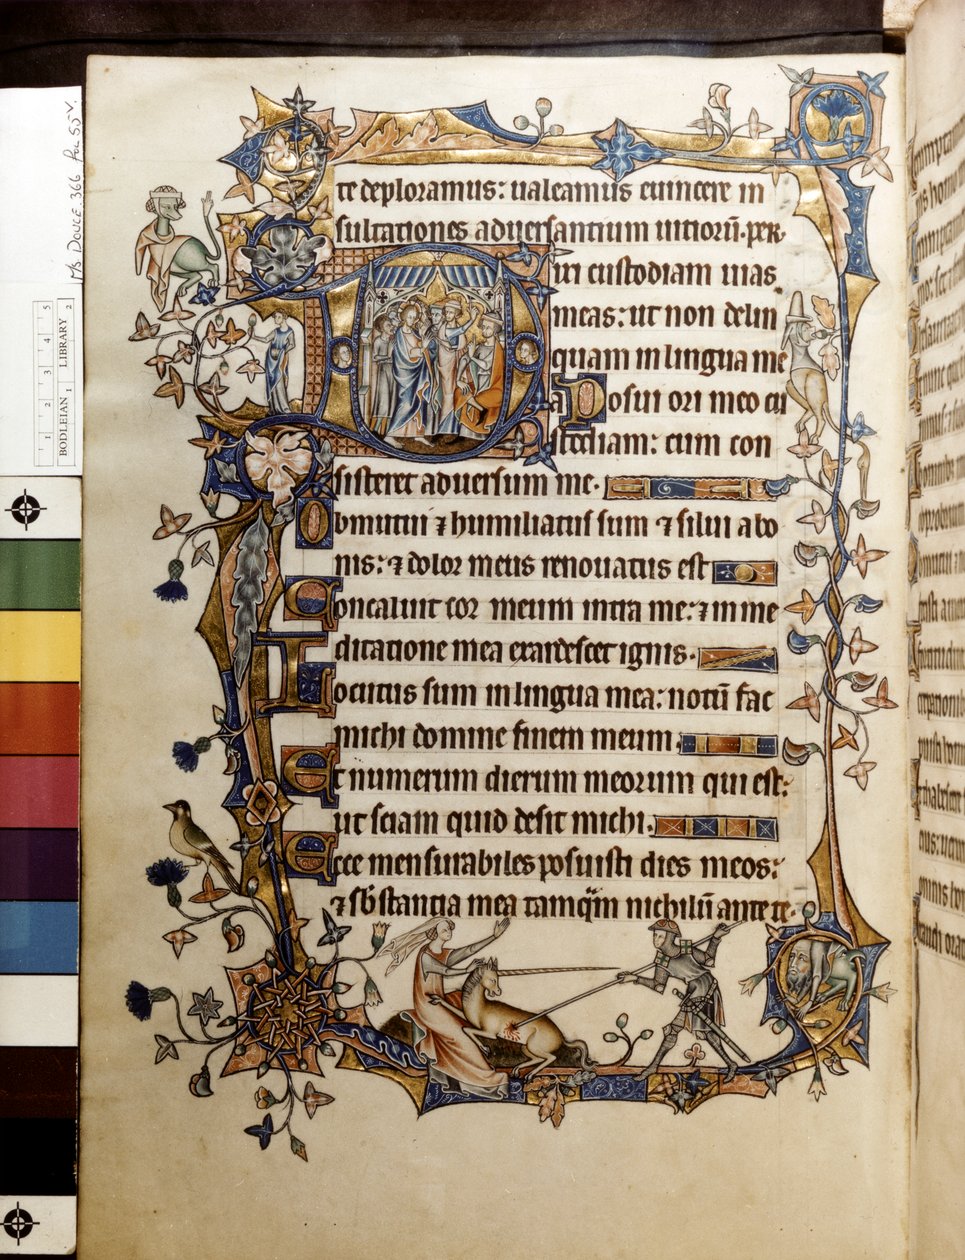 Ms. DOUCE 366 fol 55v.
BODLEIAN LIBRARY
1 2 3 4 5
1 2
te deploramus: ualeamus euincere in
sultationes aduersantium uitiorū. per.
ixi custodiam uias
meas: ut non delin
quam in lingua me
a Posui ori meo cu
stodiam: cum con
sisteret aduersum me.
Obmutui ⁊ humiliatus sum ⁊ silui a bo
nis: ⁊ dolor meus renouatus est
Concaluit cor meum intra me: ⁊ in me
ditatione mea exardescet ignis.
Locutus sum in lingua mea: notū fac
michi domine finem meum.
Et numerum dierum meorum qui est:
ut sciam quid desit michi.
Ecce mensurabiles posuisti dies meos:
⁊ sb̄stantia mea tamq̄m nichilū ante te.